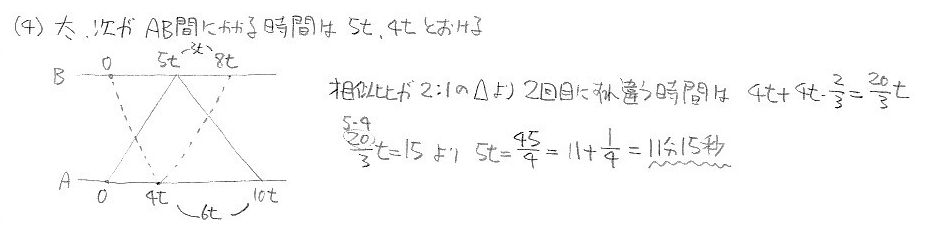 (4) 太、次が AB間にかかる時間は 5t, 4t とおける
0 5t 3t 8t
B
相似比が 2:1の△より 2回目にすれ違う時間は 4t+4t・2/3=20/3t
5・4
20/3t=15 より 5t=45/4=11+1/4=11分15秒
A
0 4t 10t
6t